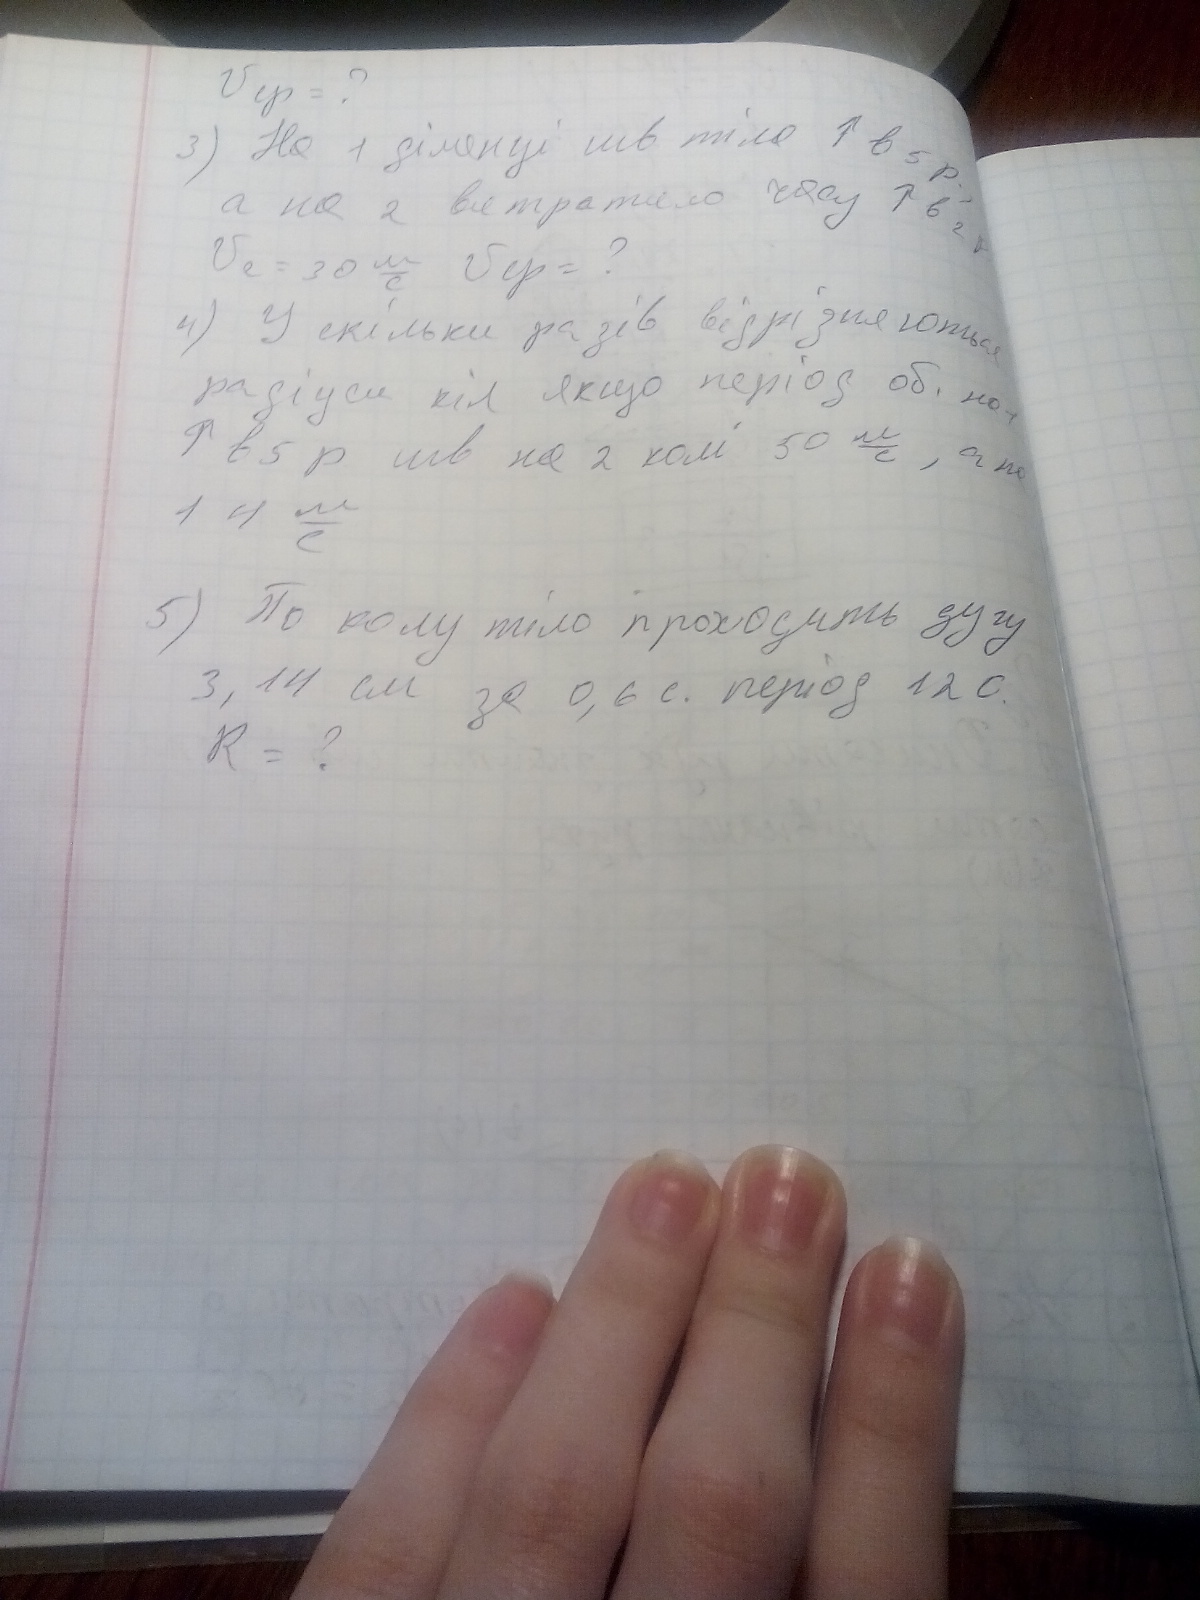 Vср = ?
3) На 1 ділянці шв тіла ↑ в 5 р.
а на 2 витратило часу ↑ в 2 р
V₂ = 30 м/с Vср = ?
4) У скільки разів відрізняються
радіуси кіл якщо період об. на 1
↑ в 5 р шв на 2 колі 50 м/с, а на
1 4 м/с
5) По колу тіло проходить дугу
3,14 см за 0,6 с. період 12 с.
R = ?